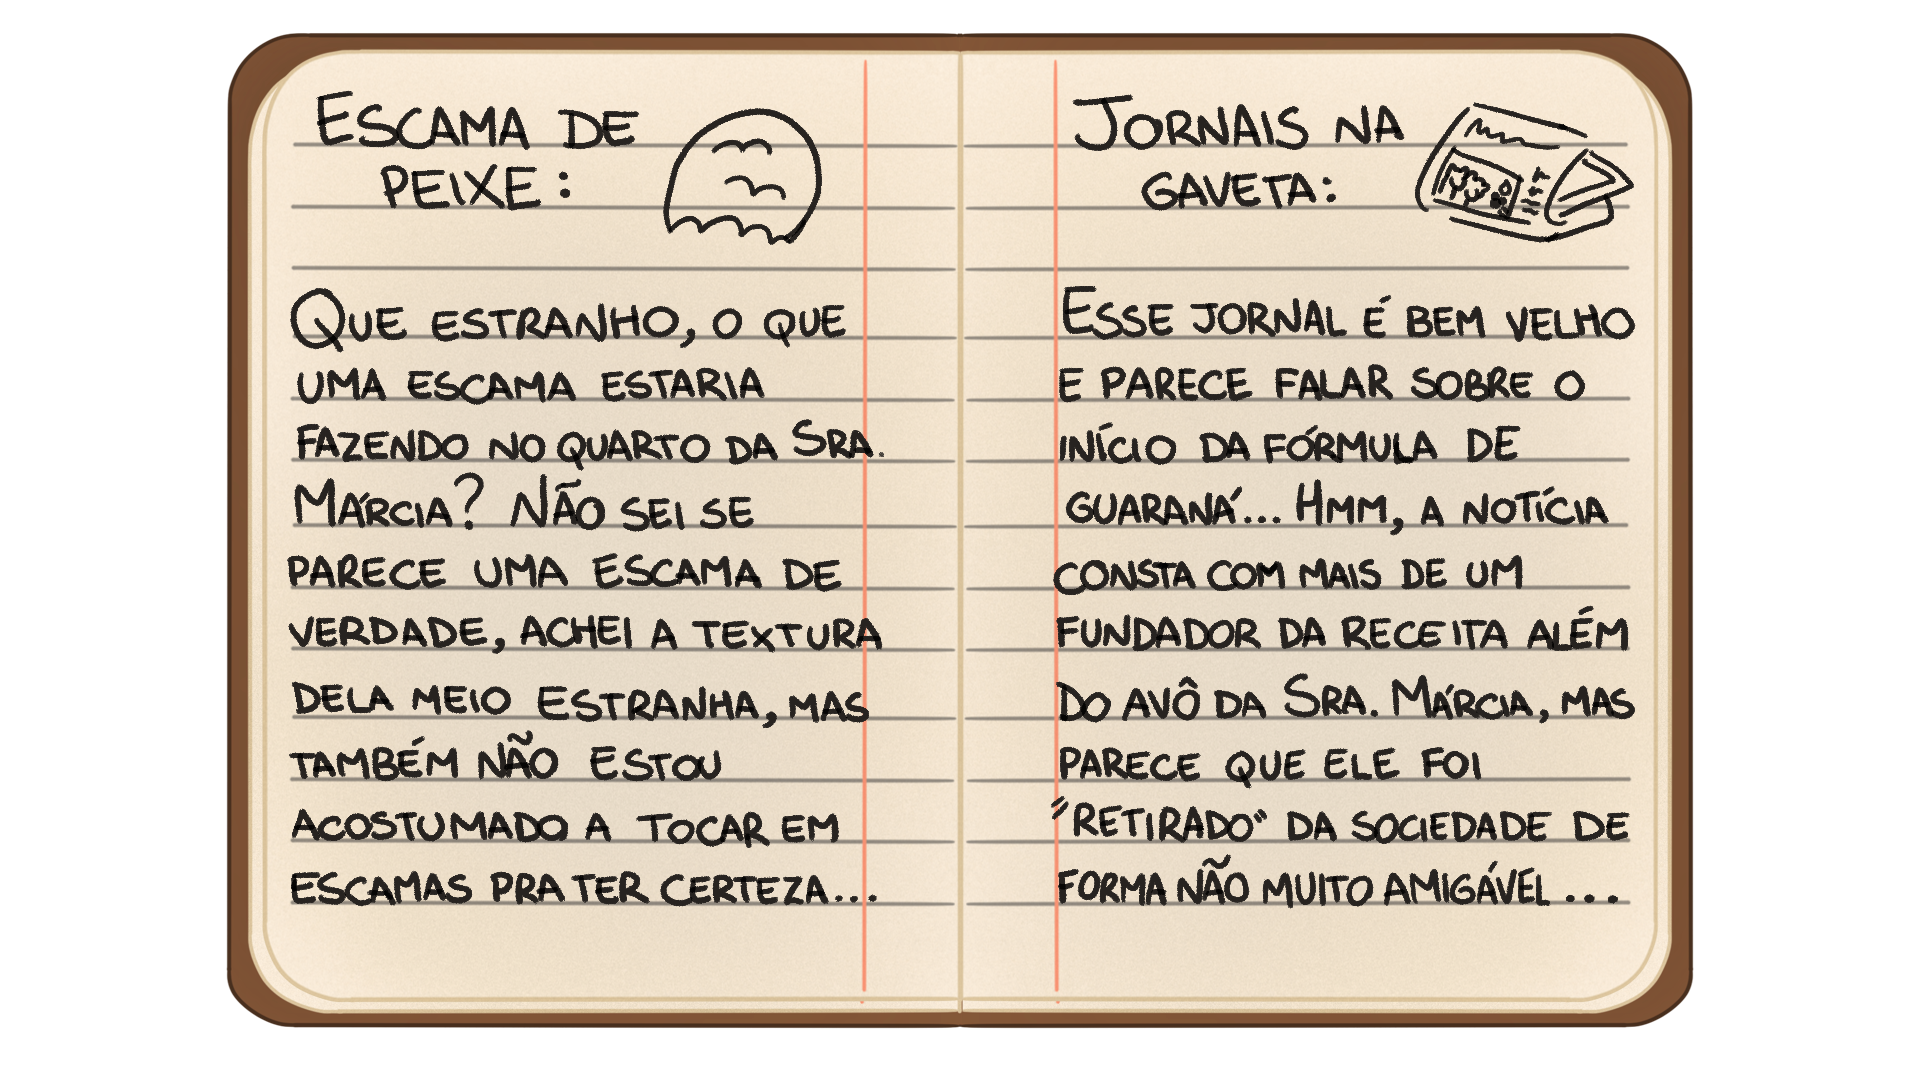 Escama de
peixe:
Que estranho, o que
uma escama estaria
fazendo no quarto da Sra.
Márcia? Não sei se
parece uma escama de
verdade, achei a textura
dela meio estranha, mas
também não estou
acostumado a tocar em
escamas pra ter certeza...
Jornais na
gaveta:
Esse jornal é bem velho
e parece falar sobre o
início da fórmula de
guaraná... Hmm, a notícia
consta com mais de um
fundador da receita além
do avô da Sra. Márcia, mas
parece que ele foi
"retirado" da sociedade de
forma não muito amigável...